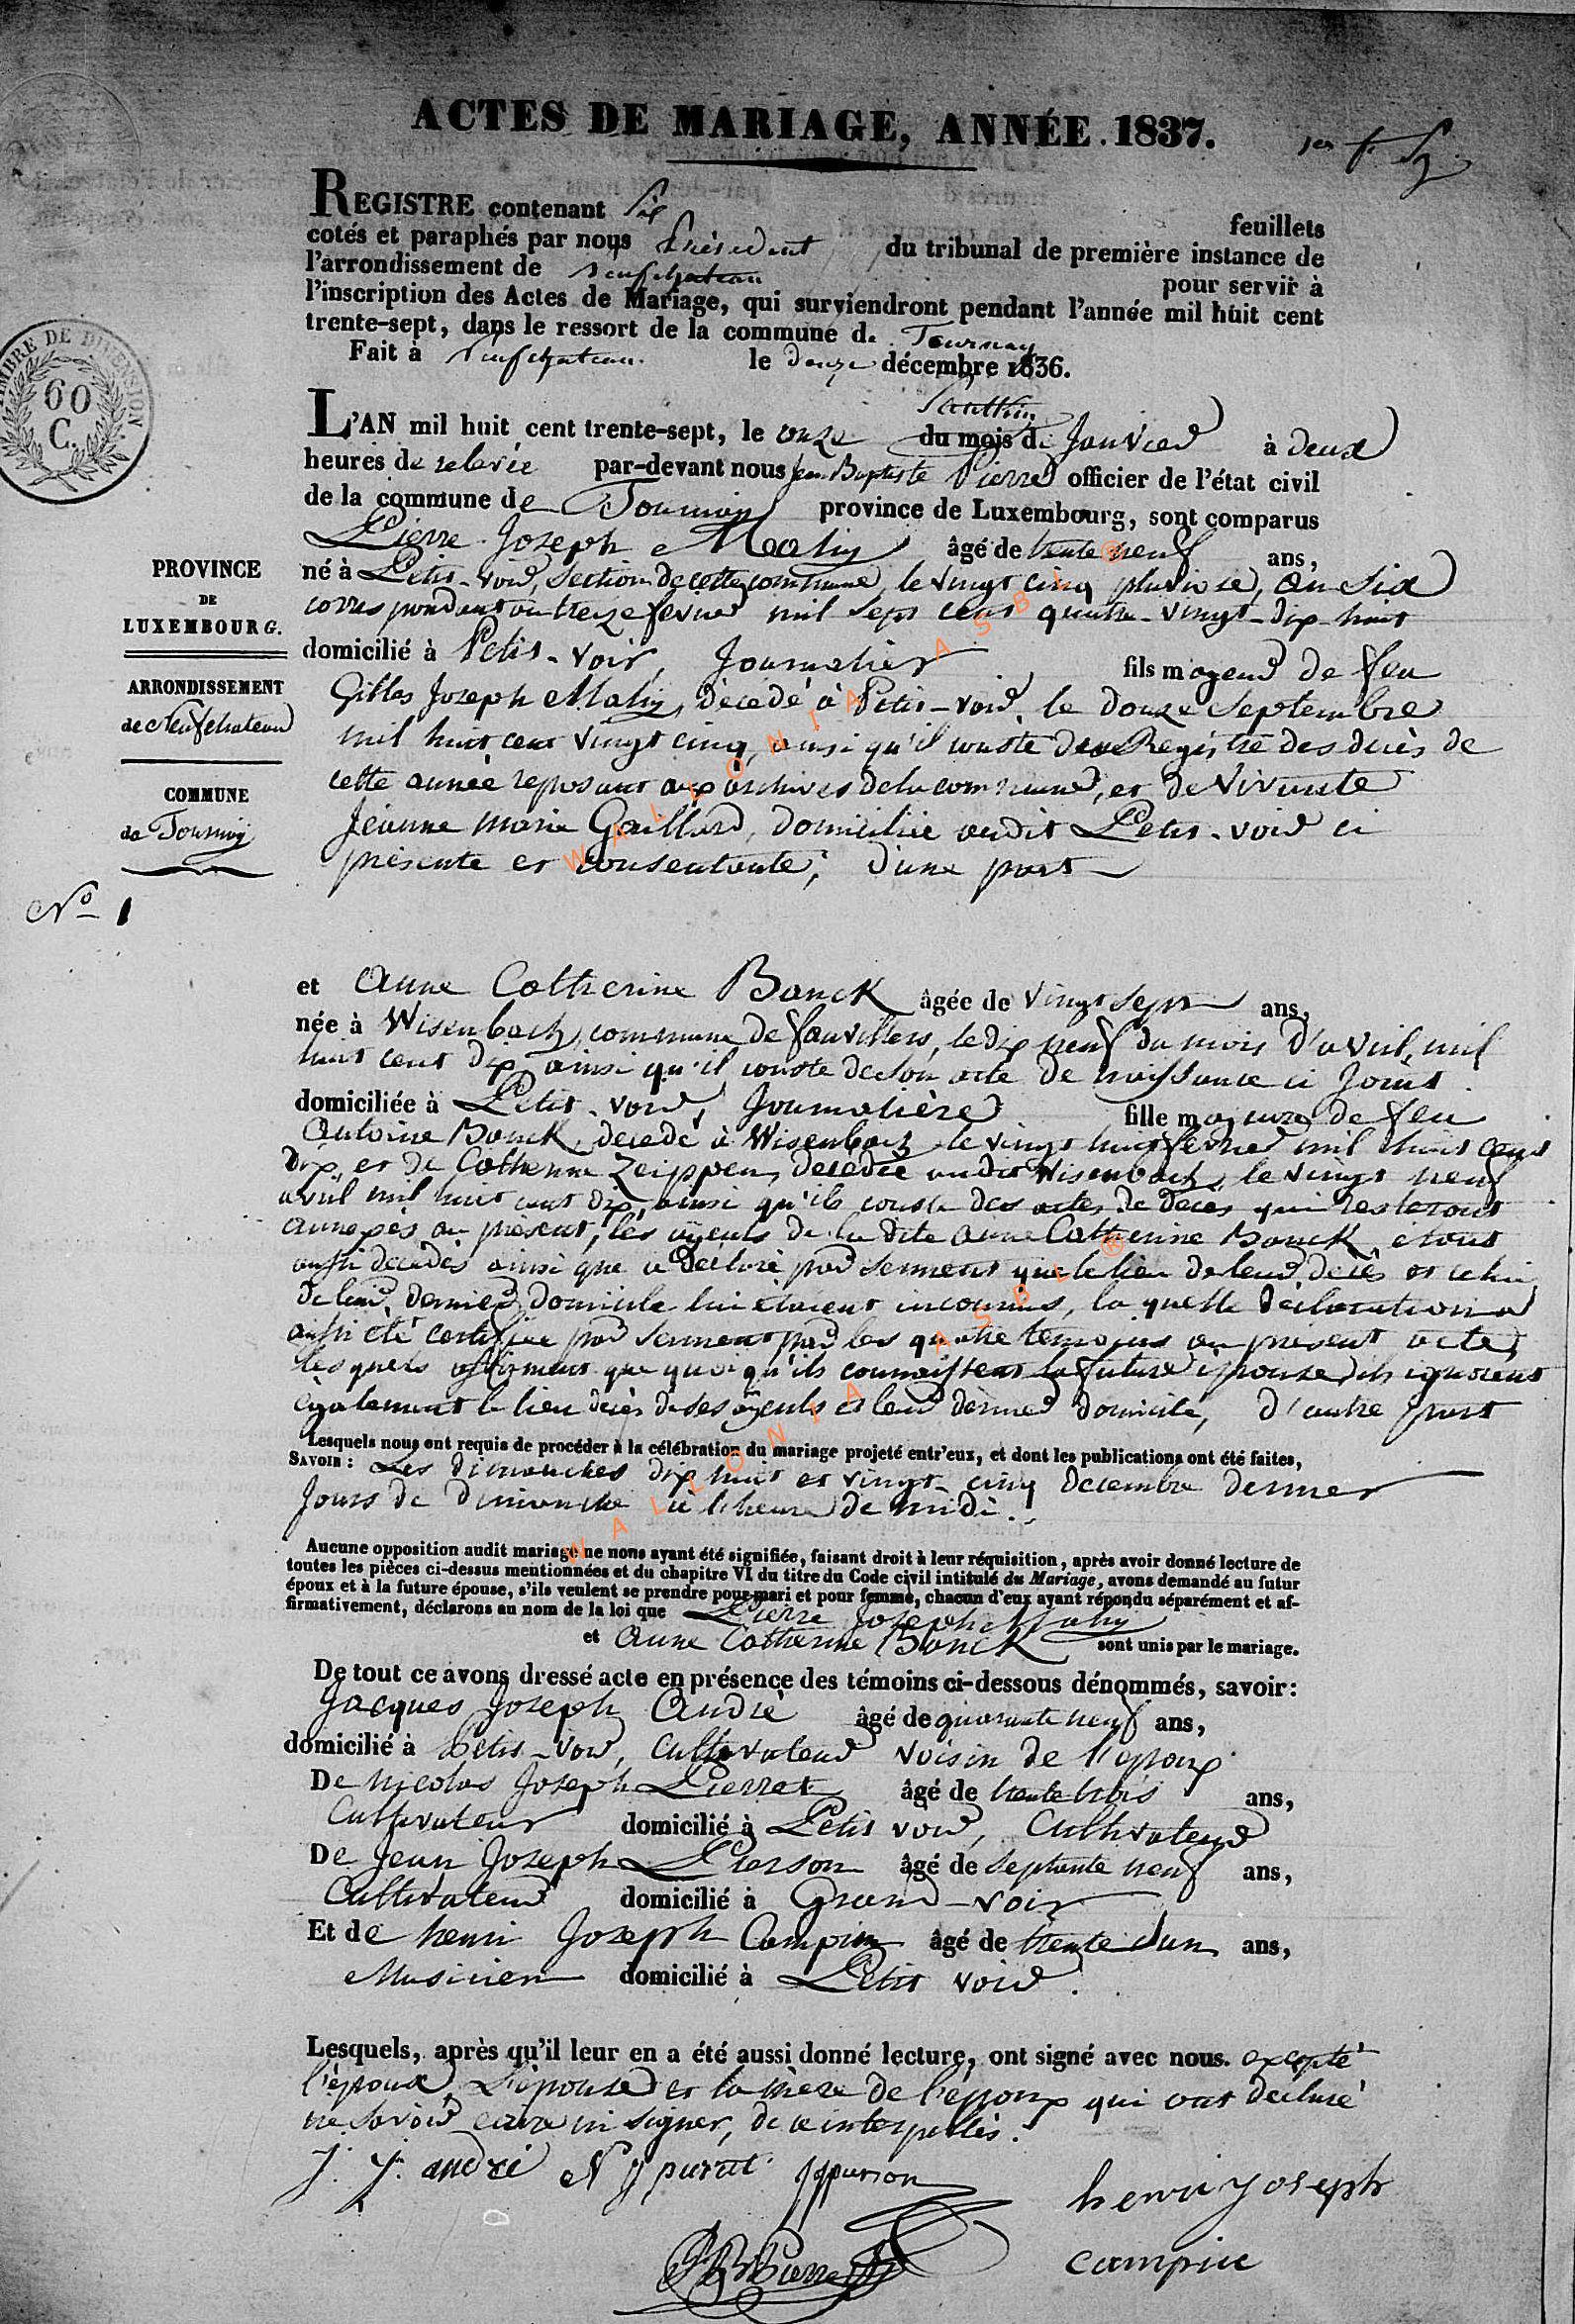 ACTES DE MARIAGE, ANNÉE 1837.
1er f.
REGISTRE contenant six feuillets
cotés et paraphés par nous Président du tribunal de première instance de
l'arrondissement de neufchateau pour servir à
l'inscription des Actes de Mariage, qui surviendront pendant l'année mil huit cent
trente-sept, dans le ressort de la commune de Tournay
Fait à neufchateau. le douze décembre 1836.
TIMBRE DE DIMENSION.
60
C.
L'AN mil huit cent trente-sept, le onze du mois de Janvier à deux
heures de relevée par-devant nous Jean Baptiste Pierre officier de l'état civil
de la commune de Tournay province de Luxembourg, sont comparus
Pierre Joseph Mahy âgé de trente neuf ans,
né à Petit-voir, section de cette commune, le vingt cinq pluviose, an six
correspondant au treize fevrier mil sept cent quatre-vingt-dix-huit
domicilié à Petit-voir, Journalier fils majeur de feu
Gilles Joseph Mahy, décédé à Petit-voir, le douze Septembre
mil huit cent vingt cinq, ainsi qu'il conste du Registre des décès de
cette année reposant aux archives de la commune, et de vivante
Jeanne Marie Gaillard, domiciliée audit Petit-voir ci
présente et consentante, d'une part
PROVINCE
DE
LUXEMBOURG.
ARRONDISSEMENT
de Neufchateau
COMMUNE
de Tournay
No 1
et Anne Catherine Banck âgée de vingt sept ans,
née à Wisenbach, commune de fauvillers, le dix neuf du mois d'avril, mil
huit cent dix ainsi qu'il conste de son acte de naissance ci joint.
domiciliée à Petit-voir, Journalière fille majeure de feu
Antoine Banck, décédé à Wisenbach le vingt huit fevrier mil huit cent
dix, et de Catherine Zeippen, décédée audit Wisenbach, le vingt neuf
avril mil huit cent dix, ainsi qu'ils conste des actes de décès qui resteront
annexés au présent, les ayeuls de la dite Anne Catherine Banck étant
aussi décédés ainsi que a déclaré par serment que le lieu de leur décès et celui
de leur dernier domicile lui étaient inconnus, la quelle déclaration a
aussi été certifiée par serment par les quatre temoins au présent acte,
lesquels affirment que quoi qu'ils connaissent la future épouse, ils ignorent
également le lieu décès de ses ayeuls et leur dernier domicile, d'autre part
Lesquels nous ont requis de procéder à la célébration du mariage projeté entr'eux, et dont les publications ont été faites,
SAVOIR : Les dimanches dix huit et vingt-cinq décembre dernier
Jours de dimanche à l'heure de midi.
Aucune opposition audit mariage ne nous ayant été signifiée, faisant droit à leur réquisition, après avoir donné lecture de
toutes les pièces ci-dessus mentionnées et du chapitre VI du titre du Code civil intitulé du Mariage, avons demandé au futur
époux et à la future épouse, s'ils veulent se prendre pour mari et pour femme, chacun d'eux ayant répondu séparément et af-
firmativement, déclarons au nom de la loi que Pierre Joseph Mahy
et Anne Catherine Banck sont unis par le mariage.
De tout ce avons dressé acte en présence des témoins ci-dessous dénommés, savoir:
Jacques Joseph André âgé de quarante neuf ans,
domicilié à Petit-voir, Cultivateur voisin de l'époux
De nicolas Joseph Pierret âgé de trente trois ans,
Cultivateur domicilié à Petit voir, Cultivateur
De Jean Joseph Pierson âgé de septante neuf ans,
Cultivateur domicilié à Grand-voir
Et de henri Joseph Campin âgé de trente d'un ans,
Musicien domicilié à Petit voir.
Lesquels, après qu'il leur en a été aussi donné lecture, ont signé avec nous. excepté
l'époux, L'épouse et la mère de l'époux qui ont déclaré
ne savoir écrire ni signer, de ce interpellés.
J. J. andré N J pierret JJ pierson henri joseph
campin
JB Pierre
WALLONIA ASBL ®
WALLONIA ASBL ®